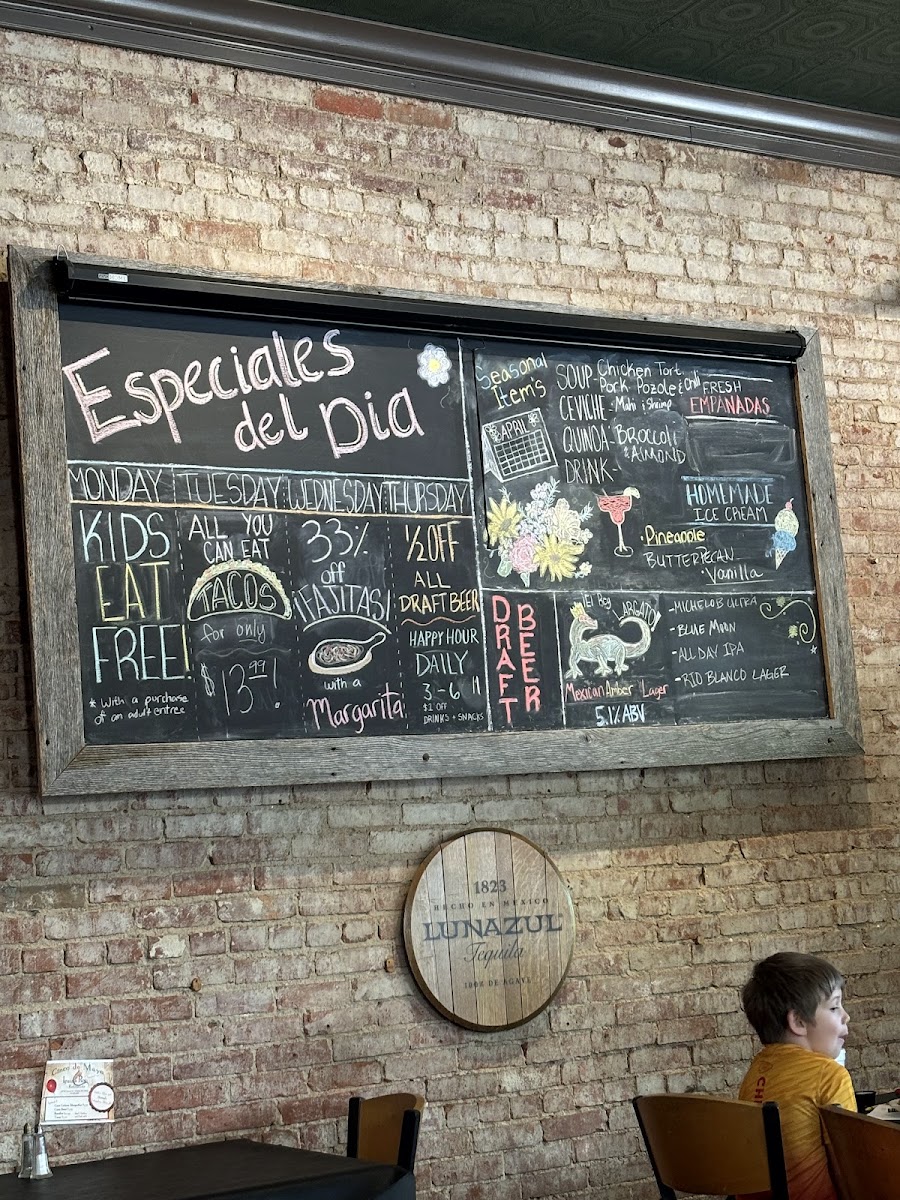 Especiales
del Dia
MONDAY
KIDS
EAT
FREE!
* With a purchase
of an adult entree
TUESDAY
ALL YOU
CAN EAT
TACOS
for only
$13.99!
WEDNESDAY
33%
off
¡FAJITAS!
with a
Margarita
THURSDAY
1/2 OFF
ALL
DRAFT BEER
HAPPY HOUR
DAILY
3-6
$1 OFF
DRINKS + SNACKS
Seasonal
Item's
APRIL
SOUP - Chicken Tort.
Pork Pozole & Chili
CEVICHE - Mahi & Shrimp
QUINOA - Broccoli
& ALMOND
DRINK -
FRESH
EMPANADAS
HOMEMADE
ICE CREAM
• Pineapple
BUTTERPECAN
• Vanilla
DRAFT
BEER
El Rey
Mexican Amber Lager
5.1% ABV
- MICHELOB ULTRA
- BLUE MOON
- ALL DAY IPA
- RIO BLANCO LAGER
1823
HECHO EN MEXICO
LUNAZUL
Tequila
100% DE AGAVE
Cinco de Mayo